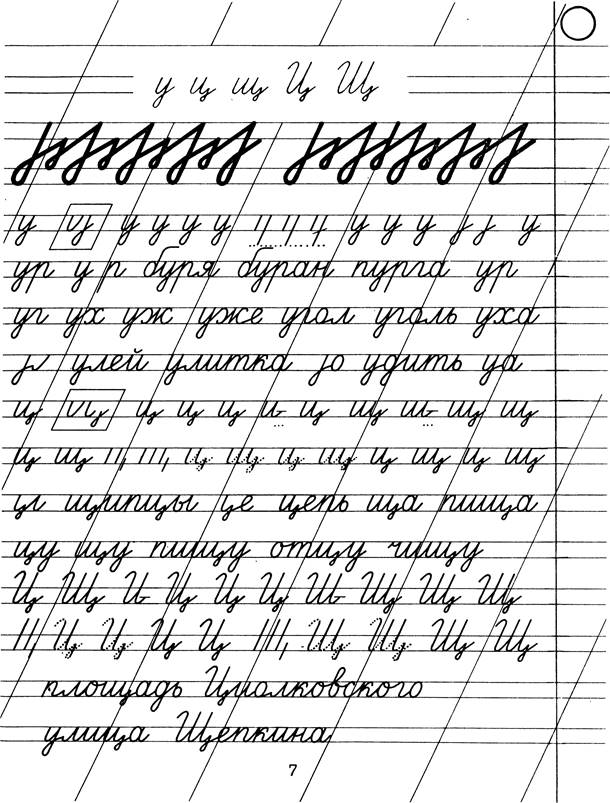 у ц щ Ц Щ
у у у у у у у у у у у
ур у р буря буран пурга ур
уг ух уж уже угол уголь уха
улей улитка ю удить уа
ц ц ц ц ц и ц щ ш щ щ
ц щ ц щ ц щ ц щ ц щ
цг щипцы це цепь ща пища
цу щу пищу отцу чищу
Ц Щ И Ц Ц Ц Ш Щ Щ Щ
Ц Ц Ц Ц Щ Щ Щ Щ
площадь Циолковского
улица Щепкина
7